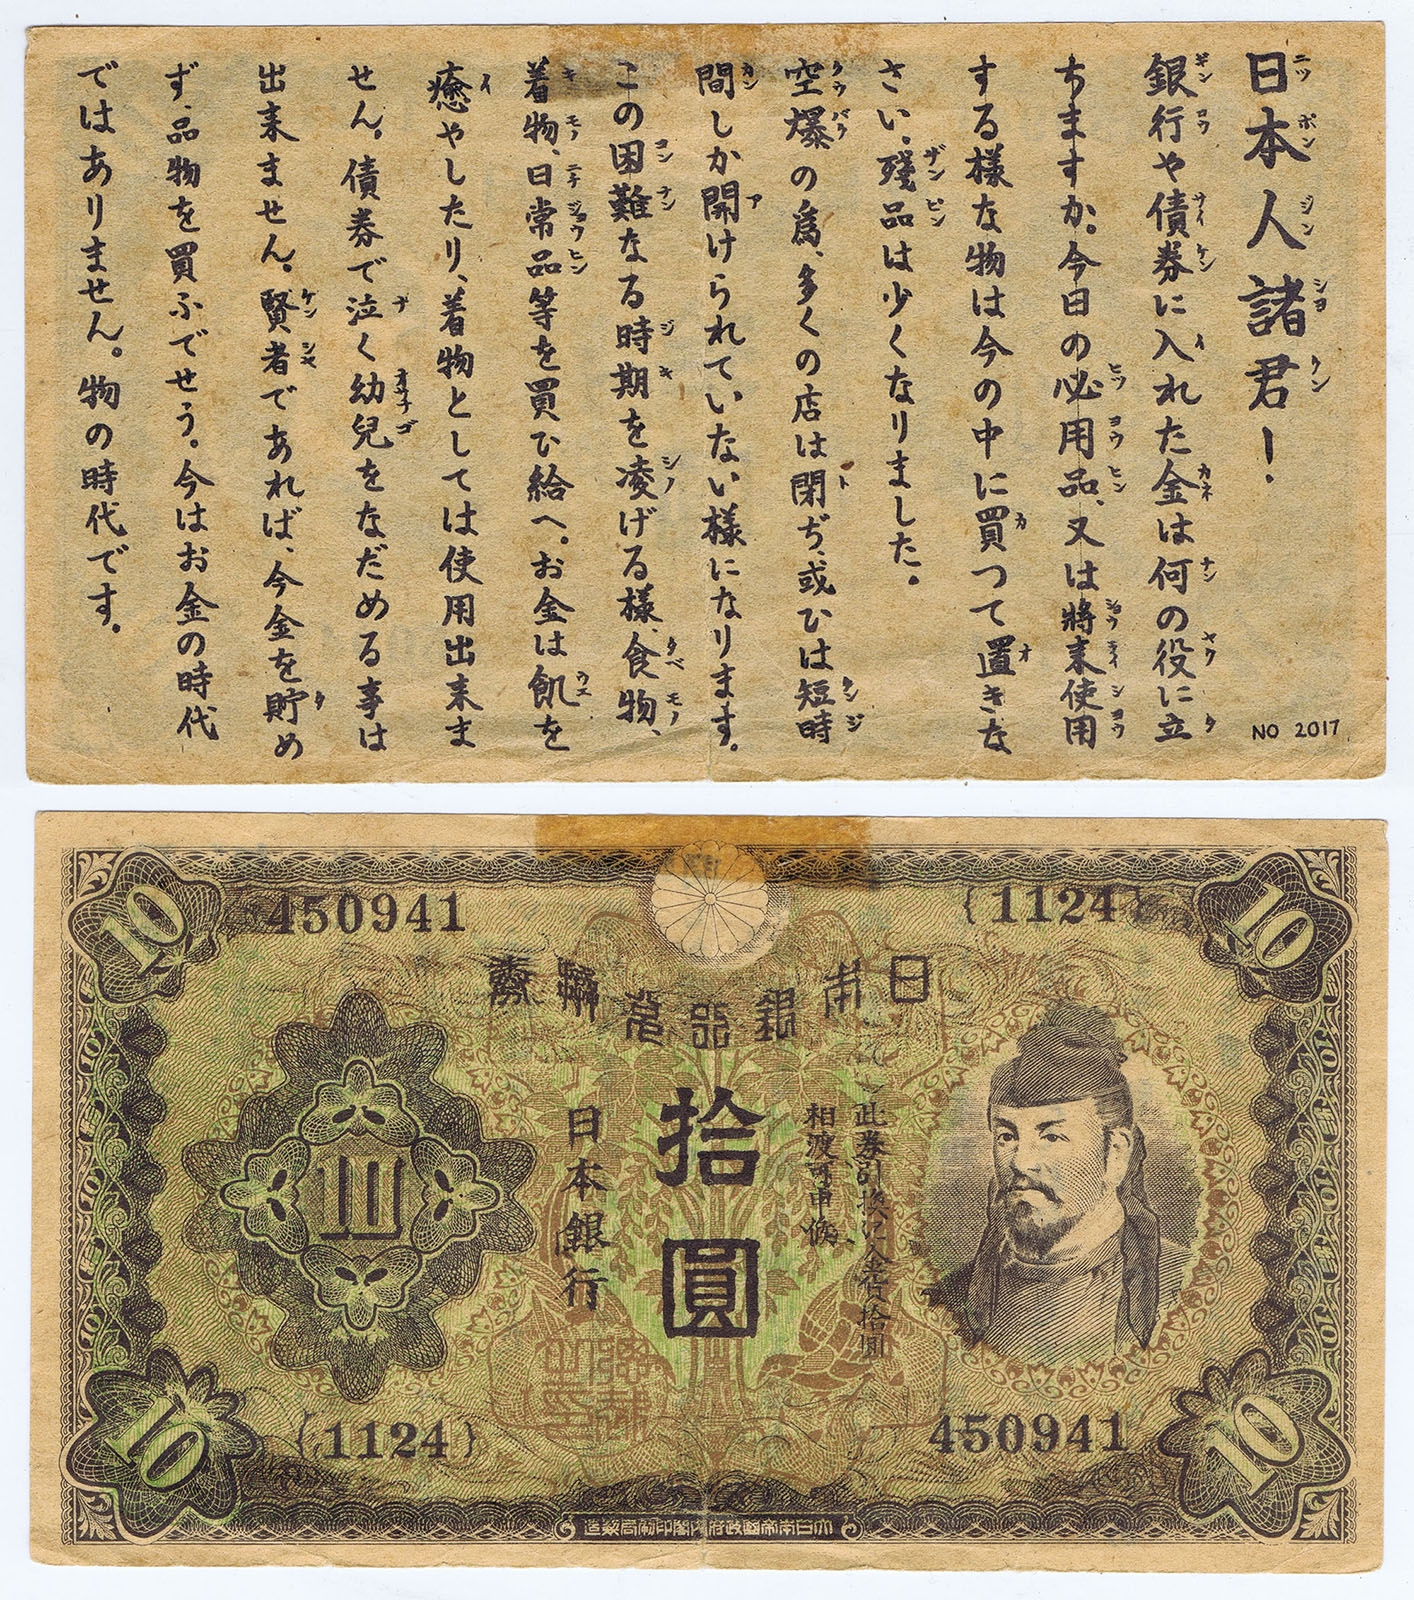 日本人諸君!
銀行や債券に入れた金は何の役に立
ちますか。今日の必用品、又は將来使用
する様な物は今の中に買つて置きな
さい。残品は少くなりました。
空爆の為、多くの店は閉ぢ、或ひは短時
間しか開けられていない様になります。
この困難なる時期を凌げる様、食物、
着物、日常品等を買ひ給へ。お金は飢を
癒やしたり、着物としては使用出来ま
せん。債券で泣く幼兒をなだめる事は
出来ません。賢者であれば、今金を貯め
ず、品物を買ふでせう。今はお金の時代
ではありません。物の時代です。
NO 2017
10
450941
{1124}
10
日本銀行兌換券
此券引換に金貨拾圓
相渡可申候
拾圓
日本銀行
10
10
{1124}
450941
10
造製局刷印閣内府政國帝本日大